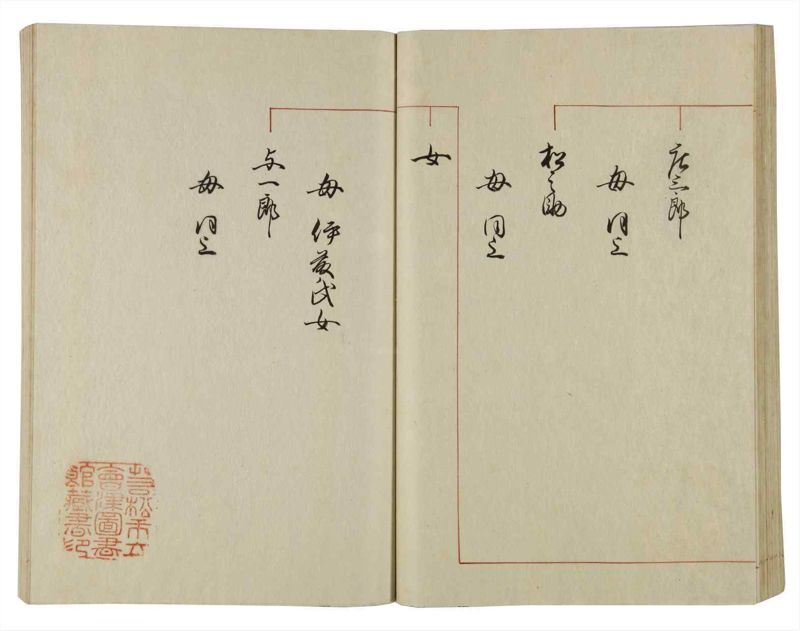 庄三郎
母 同上
松之助
母 同上
女
母 伊藤氏女
与一郎
母 同上
若松市立
會津圖書
館藏書印